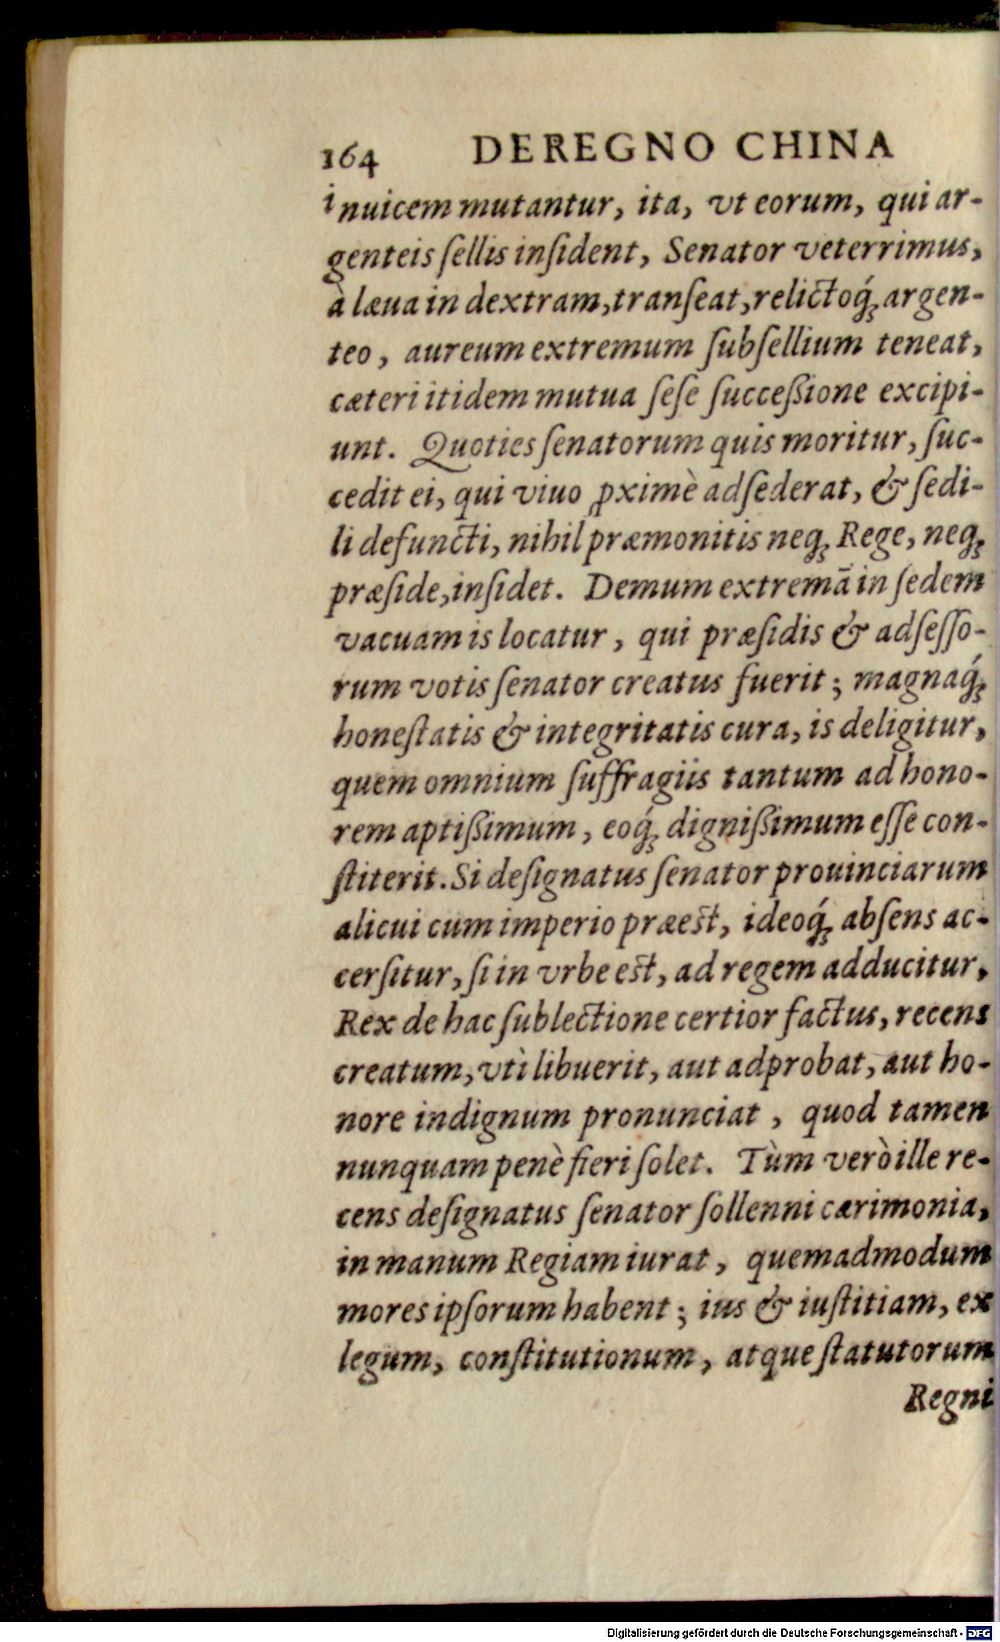 164 DE REGNO CHINA
inuicem mutantur, ita, vt eorum, qui ar-
genteis ſellis inſident, Senator veterrimus,
à læua in dextram, tranſeat, relictoq́; argen-
teo, aureum extremum ſubſellium teneat,
cæteri itidem mutua ſeſe ſucceßione excipi-
unt. Quoties ſenatorum quis moritur, ſuc-
cedit ei, qui viuo ꝓximè adſederat, & ſedi-
li defuncti, nihil præmonitis neq; Rege, neq;
præſide, inſidet. Demum extremā in ſedem
vacuam is locatur, qui præſidis & adſeſſo-
rum votis ſenator creatus fuerit; magnaq́;
honeſtatis & integritatis cura, is deligitur,
quem omnium ſuffragiis tantum ad hono-
rem aptißimum, eoq; dignißimum eſſe con-
ſtiterit. Si deſignatus ſenator prouinciarum
alicui cum imperio præeſt, ideoq́; abſens ac-
cerſitur, ſi in vrbe eſt, ad regem adducitur,
Rex de hac ſublectione certior factus, recens
creatum, vtì libuerit, aut adprobat, aut ho-
nore indignum pronunciat, quod tamen
nunquam penè fieri ſolet. Tùm verò ille re-
cens deſignatus ſenator ſollenni cærimonia,
in manum Regiam iurat, quemadmodum
mores ipſorum habent; ius & iuſtitiam, ex
legum, conſtitutionum, atque ſtatutorum
Regni
Digitalisierung gefördert durch die Deutsche Forschungsgemeinschaft - DFG